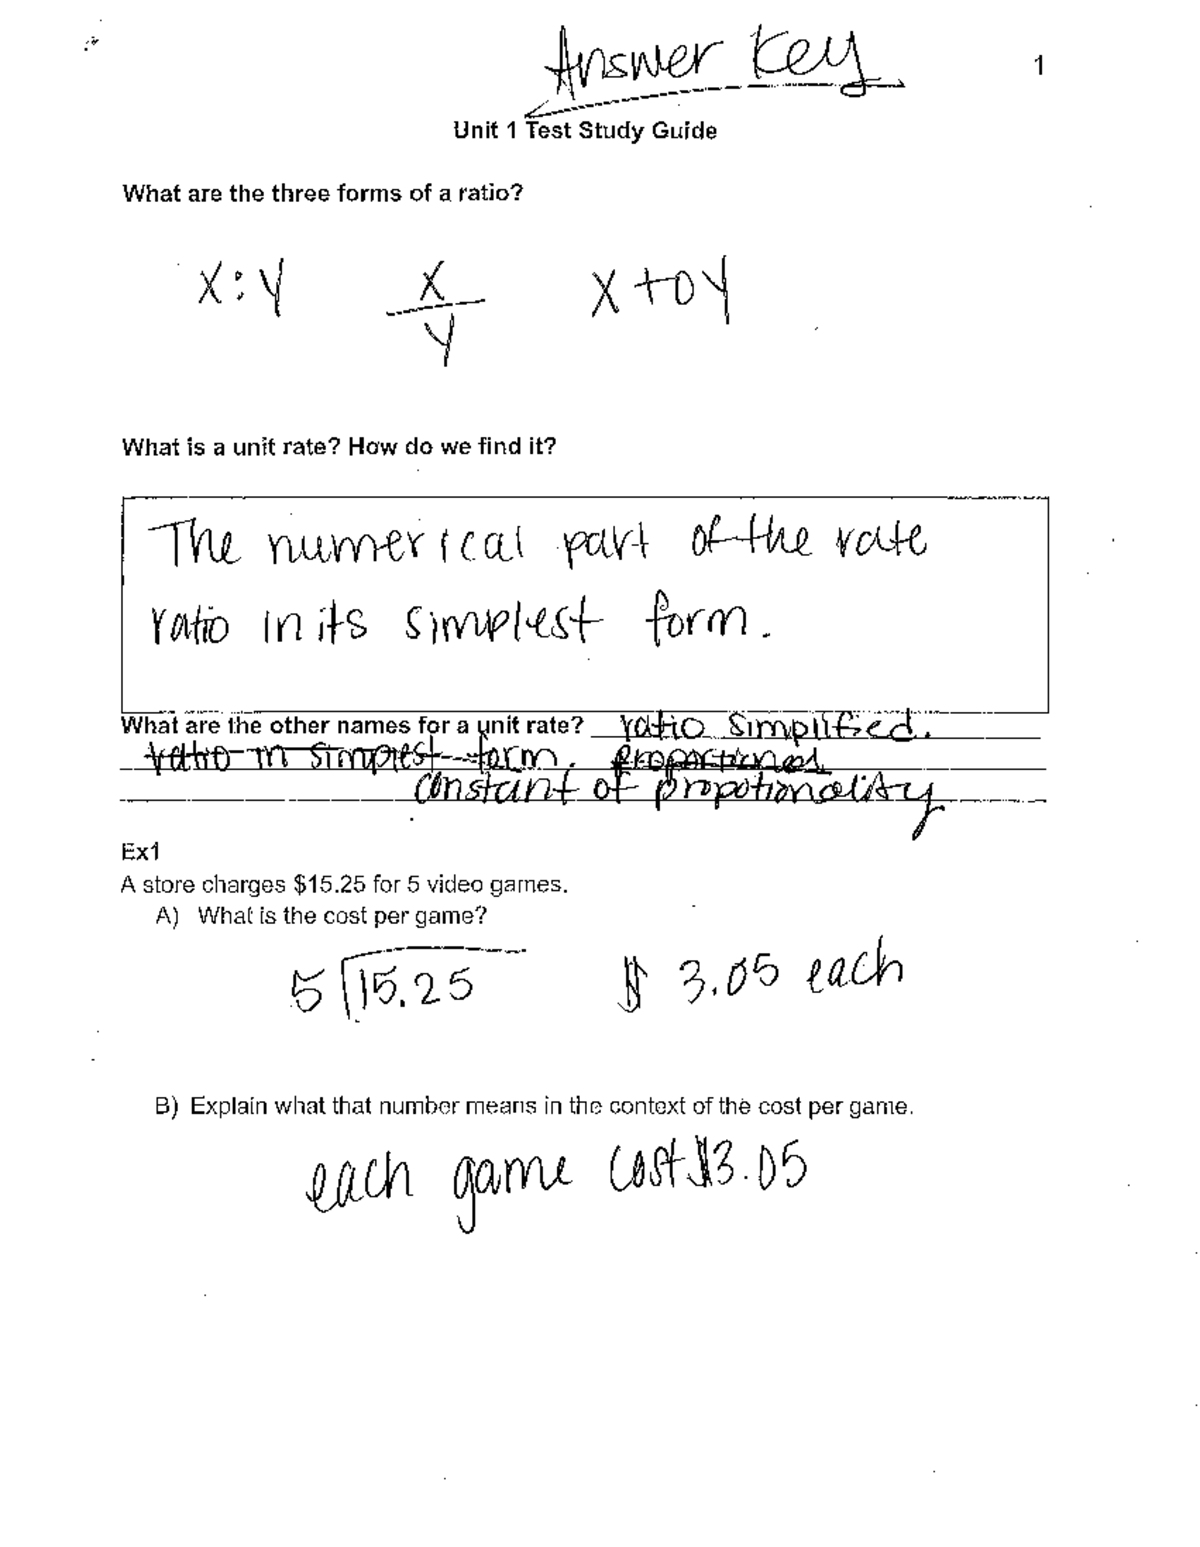 Answer Key
1
Unit 1 Test Study Guide
What are the three forms of a ratio?
x:y x/y x to y
What is a unit rate? How do we find it?
The numerical part of the rate
ratio in its simplest form.
What are the other names for a unit rate? ratio simplified.
ratio in simplest form. proportional
constant of propotionality
Ex1
A store charges $15.25 for 5 video games.
A) What is the cost per game?
5 15.25 $ 3.05 each
B) Explain what that number means in the context of the cost per game.
each game cost $3.05